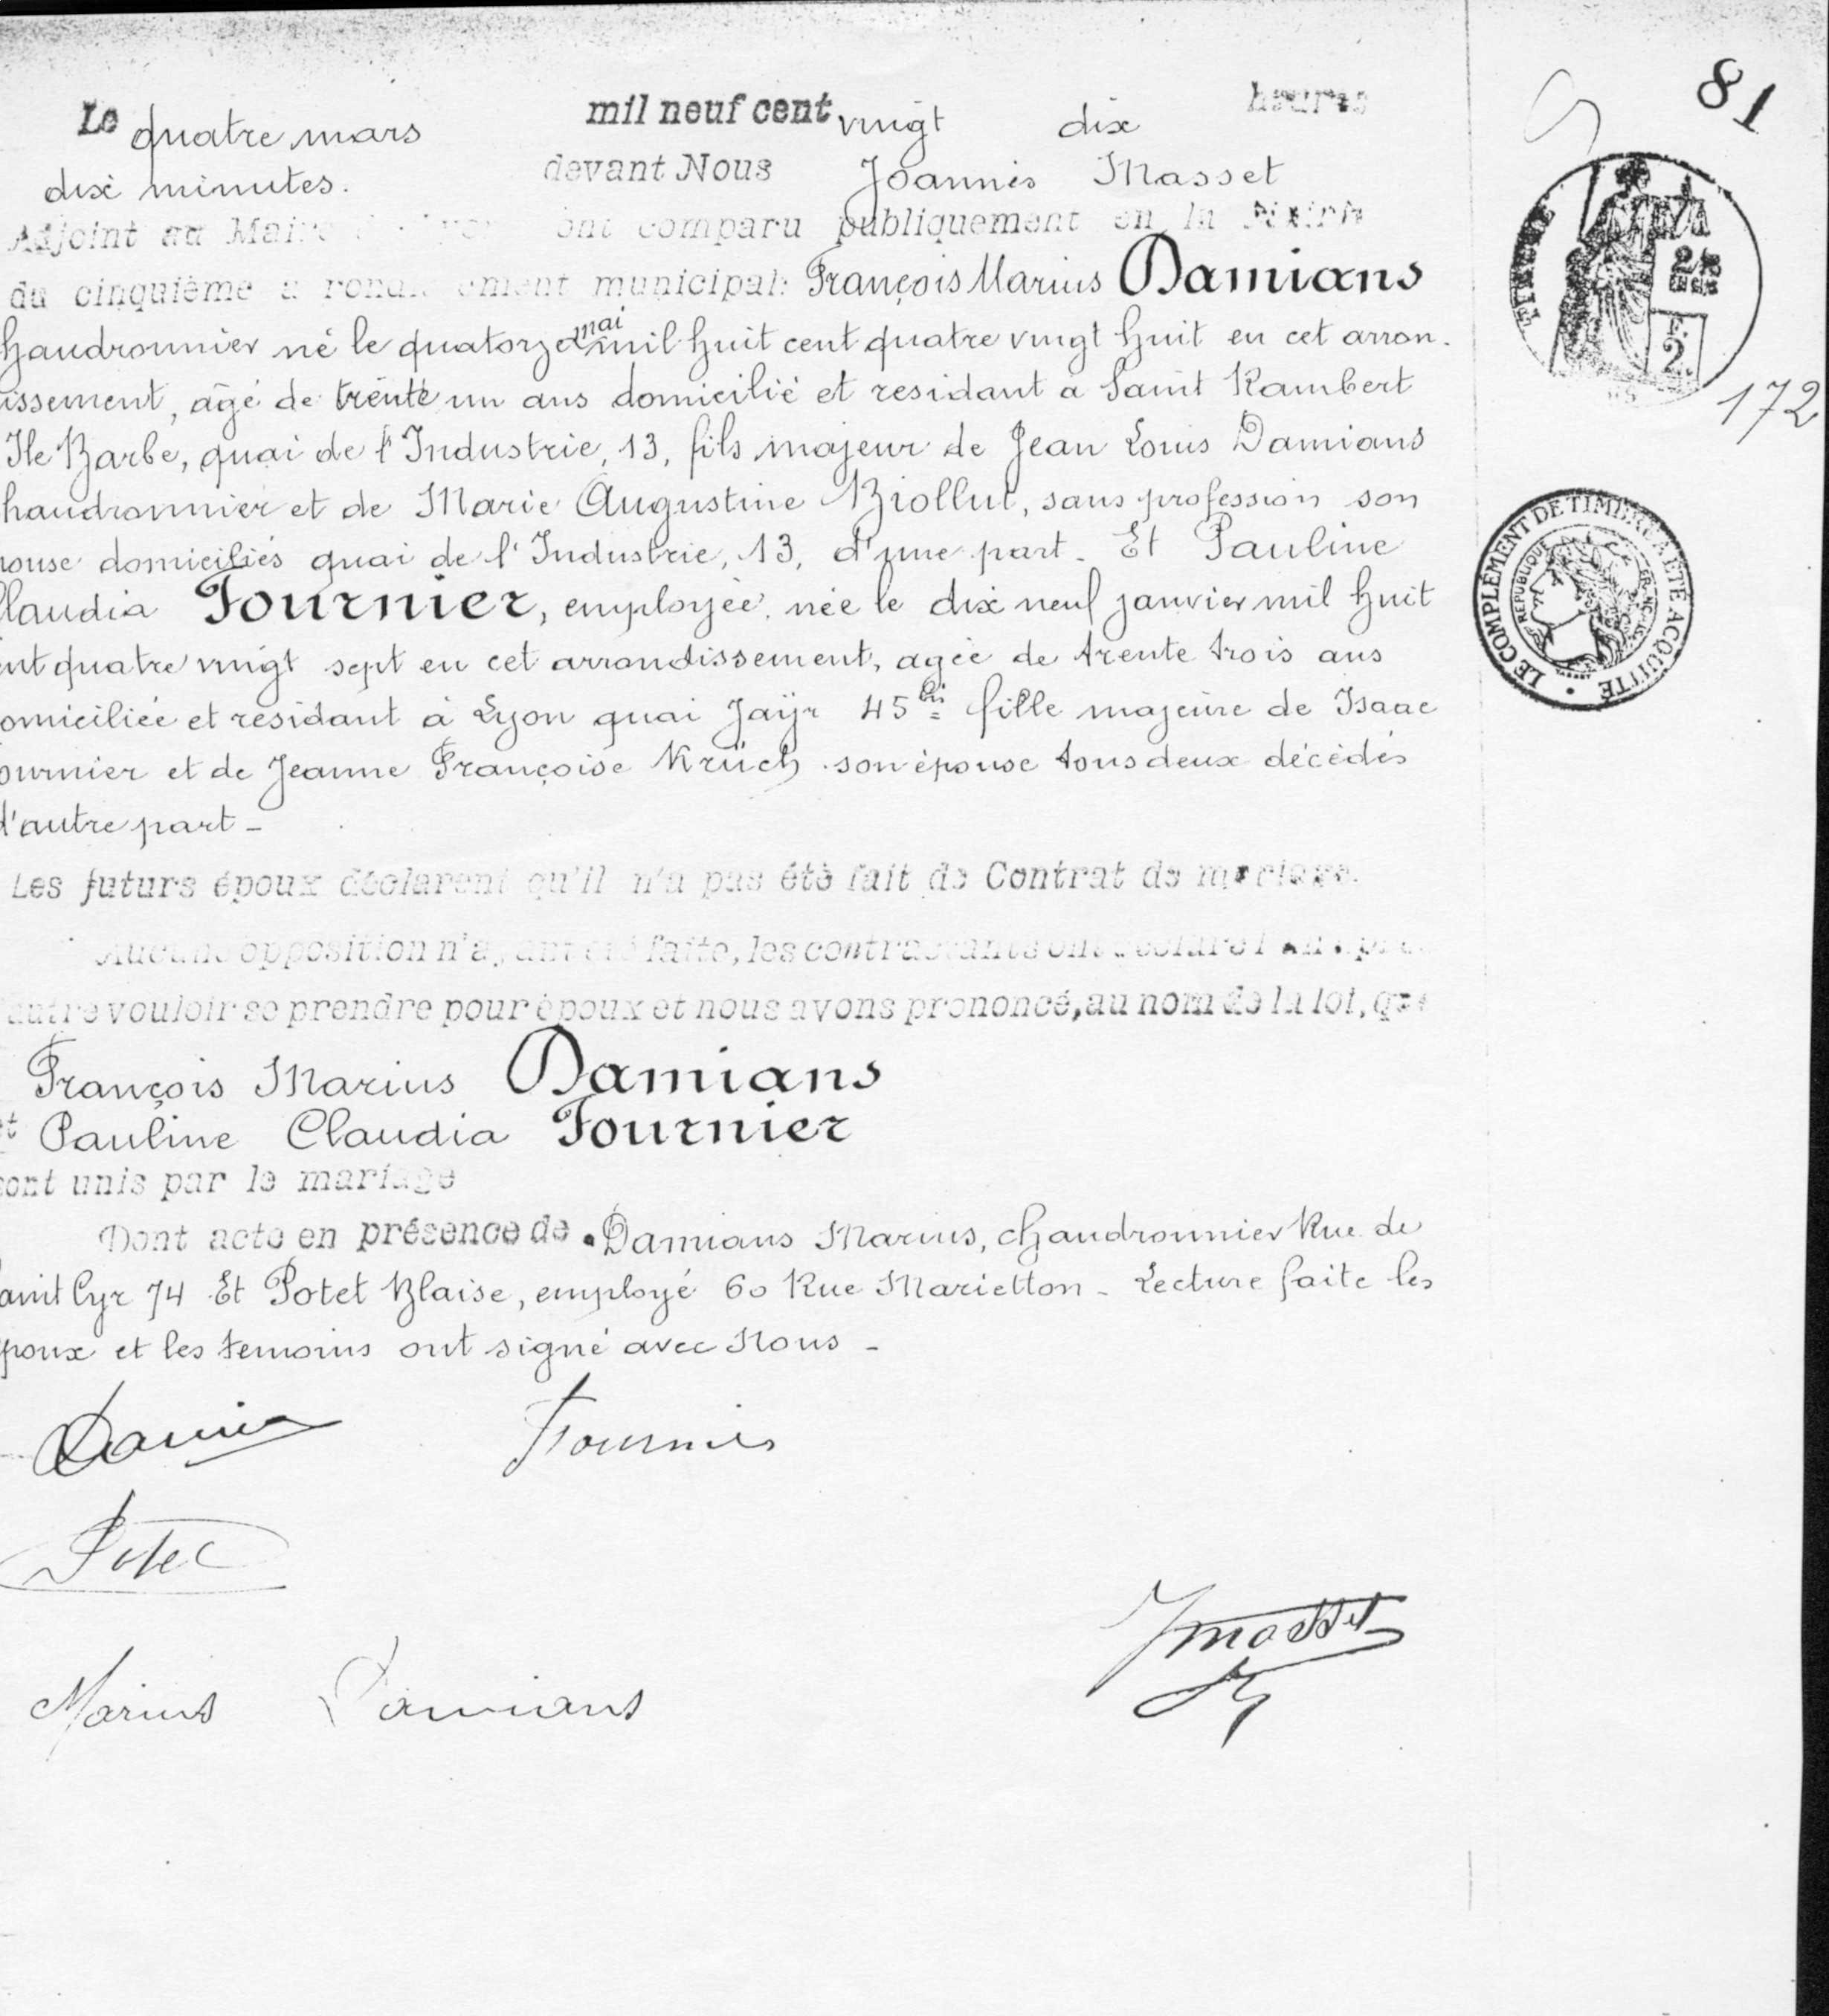 81
Le quatre mars mil neuf cent vingt dix heures
dix minutes. devant Nous Joannès Masset
Adjoint au Maire ont comparu publiquement en la
du cinquième municipal: François Marius Damians
haudronnier né le quatorze mai mil huit cent quatre vingt huit en cet arron.
issement, âgé de trente un ans domicilié et residant a Saint Rambert
Ile Barbe, quai de l'Industrie, 13, fils majeur de Jean Louis Damians
haudronnier et de Marie Augustine Biollut, sans profession son
pouse domiciliés quai de l'Industrie, 13, d'une part. Et Pauline
Claudia Fournier, employée, née le dix neuf janvier mil huit
ent quatre vingt sept en cet arrondissement, agée de trente trois ans
omiciliée et residant à Lyon quai Jaÿr 45 bis fille majeure de Isaac
ournier et de Jeanne Françoise Krüch son épouse tous deux décédés
d'autre part -
Les futurs époux déclarent qu'il n'a pas été fait de Contrat de mariage.
Aucune opposition n'ayant été faite, les contractants ont déclaré l'un après
autre vouloir se prendre pour époux et nous avons prononcé, au nom de la loi, que
François Marius Damians
et Pauline Claudia Fournier
sont unis par le mariage
Dont acte en présence de Damians Marius, chaudronnier Rue de
aint Cyr 74 Et Potet Blaise, employé 60 Rue Marietton - Lecture faite les
poux et les temoins ont signé avec Nous -
Fournier
Potet
JMasset
Marius Damians
TIMBRE
2/10
EN SUS
F.
2.
172
LE COMPLÉMENT DE TIMBRE A ÉTÉ ACQUITTÉ
REPUBLIQUE FRANÇAISE